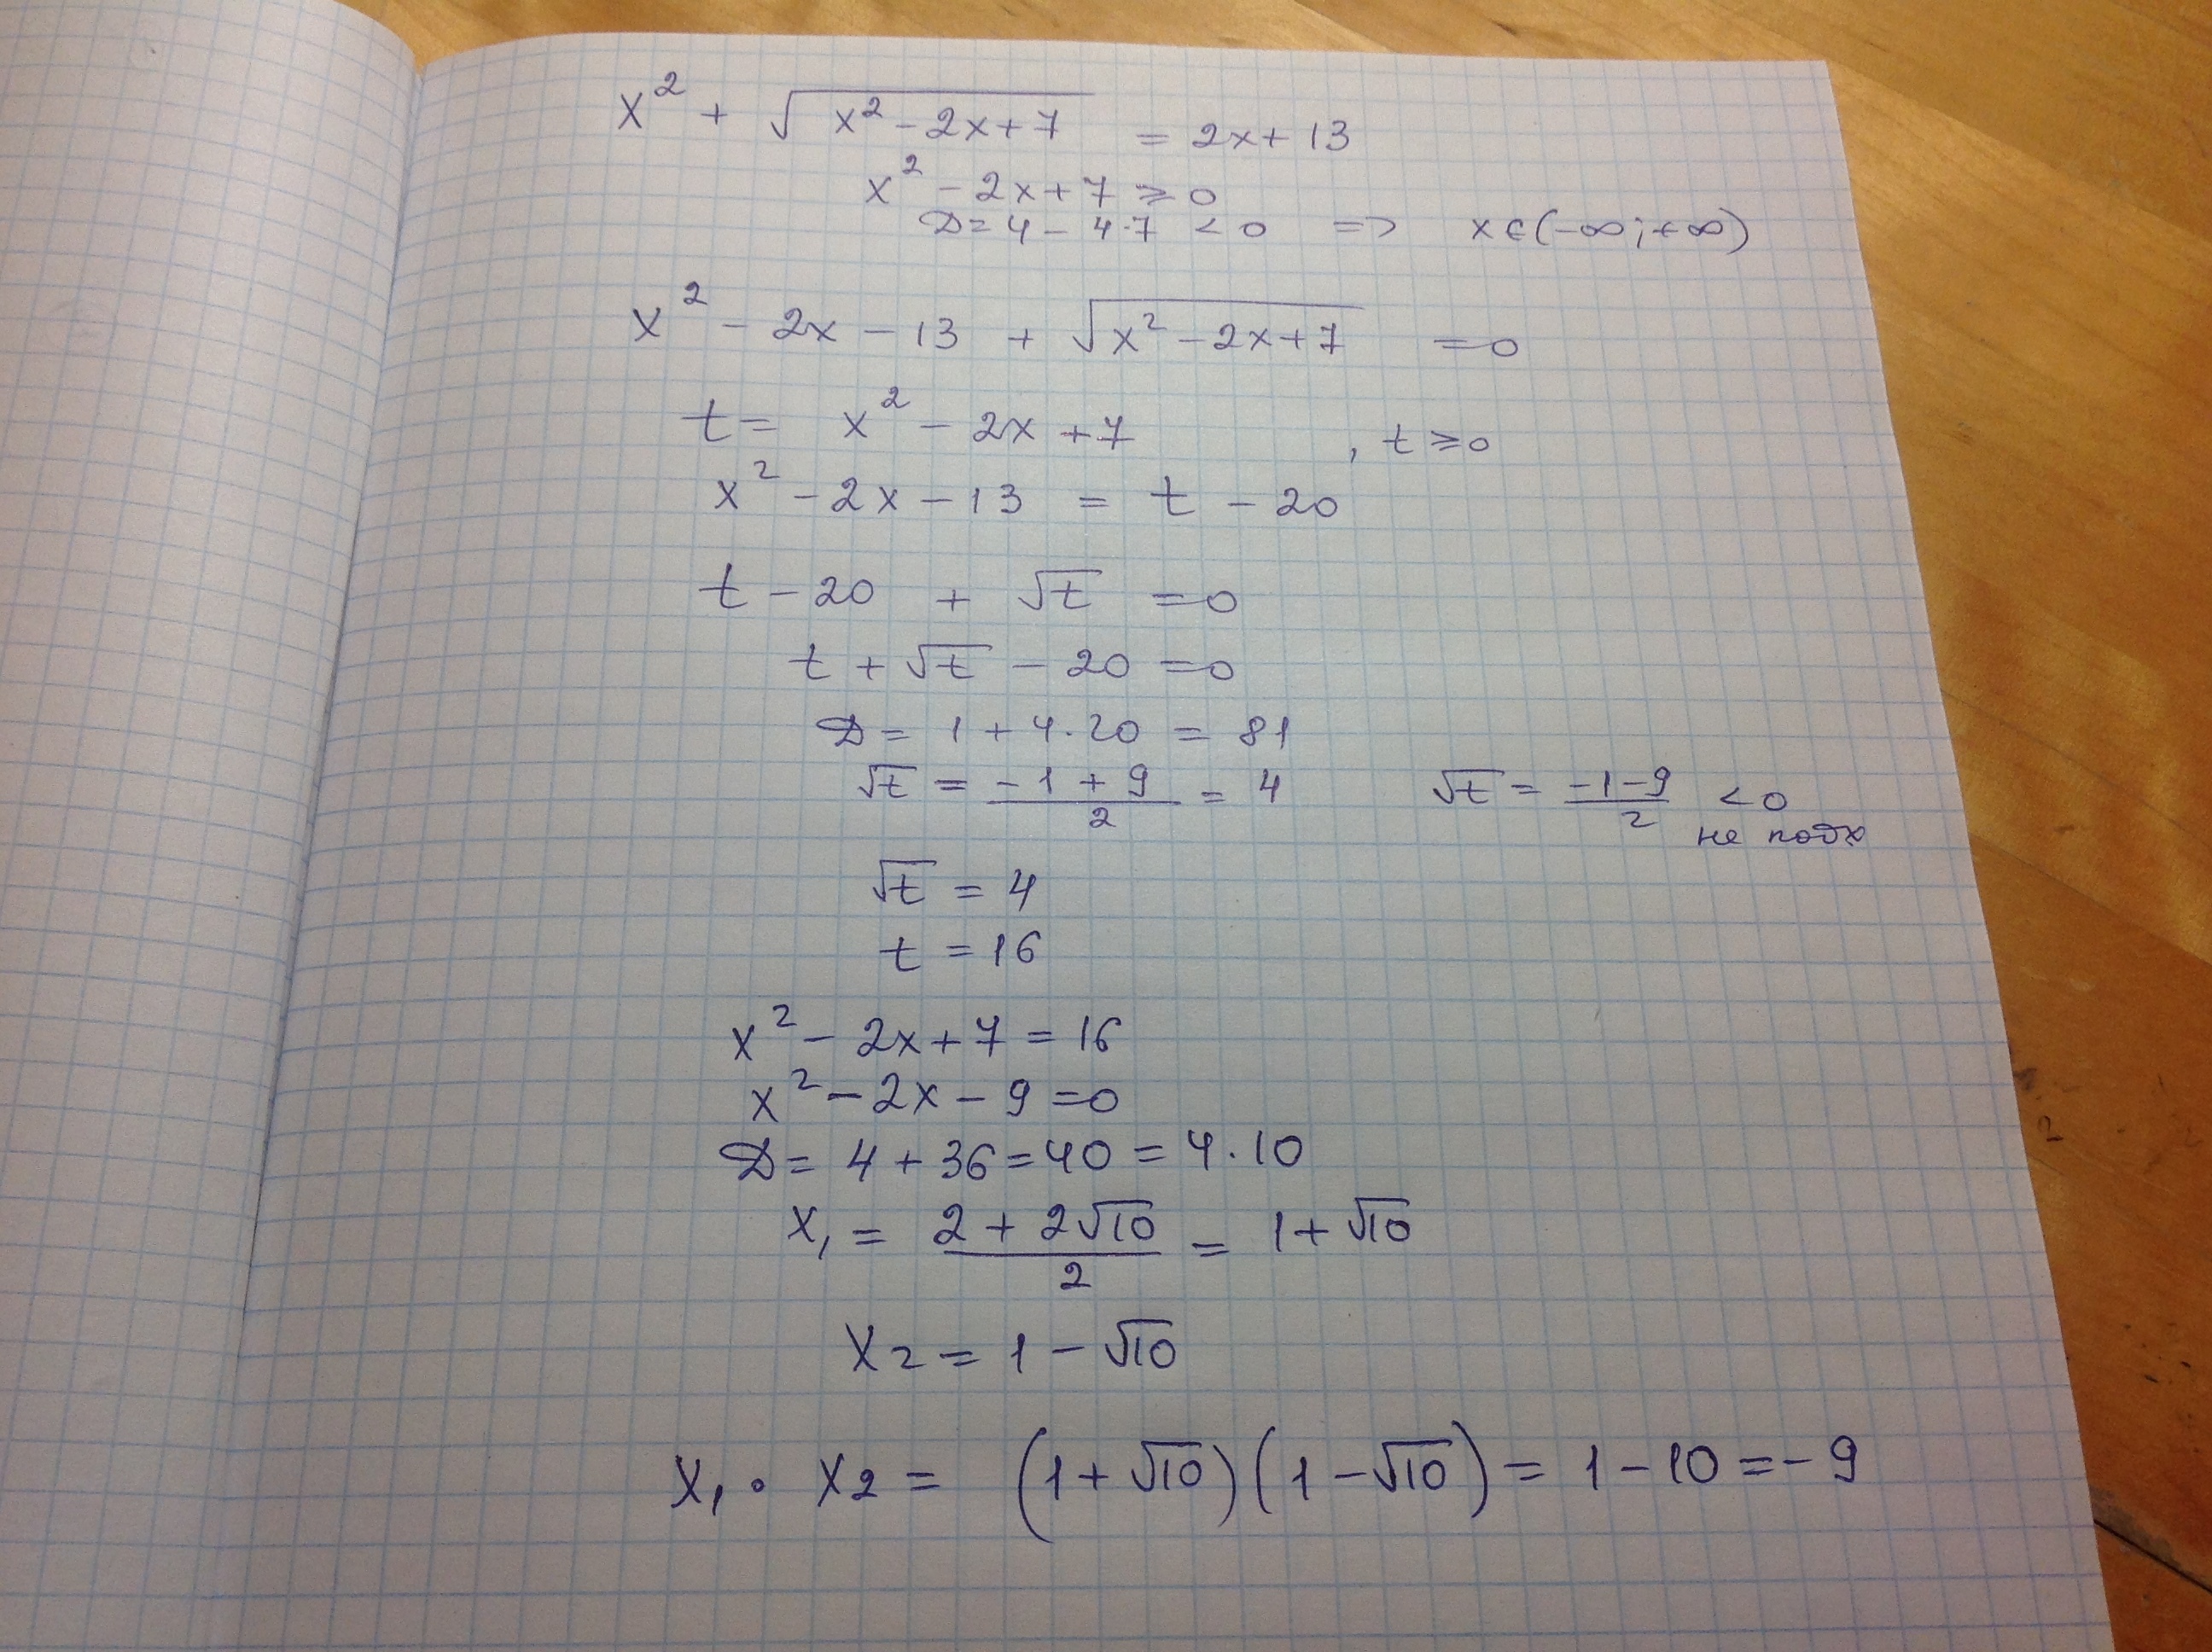 x² + √(x² - 2x + 7) = 2x + 13
x² - 2x + 7 ⩾ 0
D = 4 - 4·7 < 0 => x ∈ (-∞; +∞)
x² - 2x - 13 + √(x² - 2x + 7) = 0
t = x² - 2x + 7 , t ⩾ 0
x² - 2x - 13 = t - 20
t - 20 + √t = 0
t + √t - 20 = 0
D = 1 + 4·20 = 81
√t = (-1 + 9)/2 = 4 √t = (-1 - 9)/2 < 0
не подх
√t = 4
t = 16
x² - 2x + 7 = 16
x² - 2x - 9 = 0
D = 4 + 36 = 40 = 4·10
x₁ = (2 + 2√10)/2 = 1 + √10
x₂ = 1 - √10
x₁ · x₂ = (1 + √10)(1 - √10) = 1 - 10 = -9